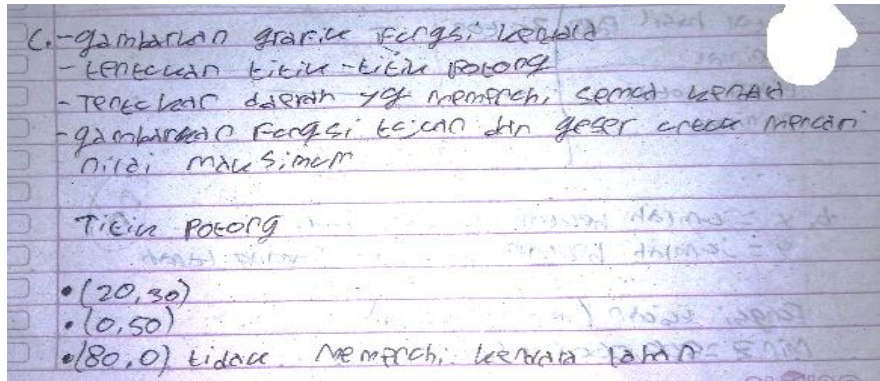 C. - gambarkan grafik fungsi kendala
- tentukan titik-titik potong
- Tentukan daerah yg memenuhi semua kendala
- gambarkan fungsi tujuan dan geser untuk mencari
nilai maksimum
Titik Potong
• (20,30)
• (0,50)
• (80,0) tidak memenuhi kendala lahan